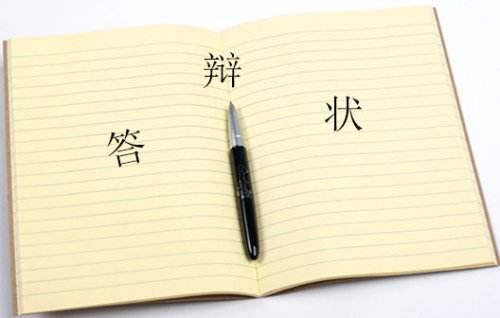 答辩状